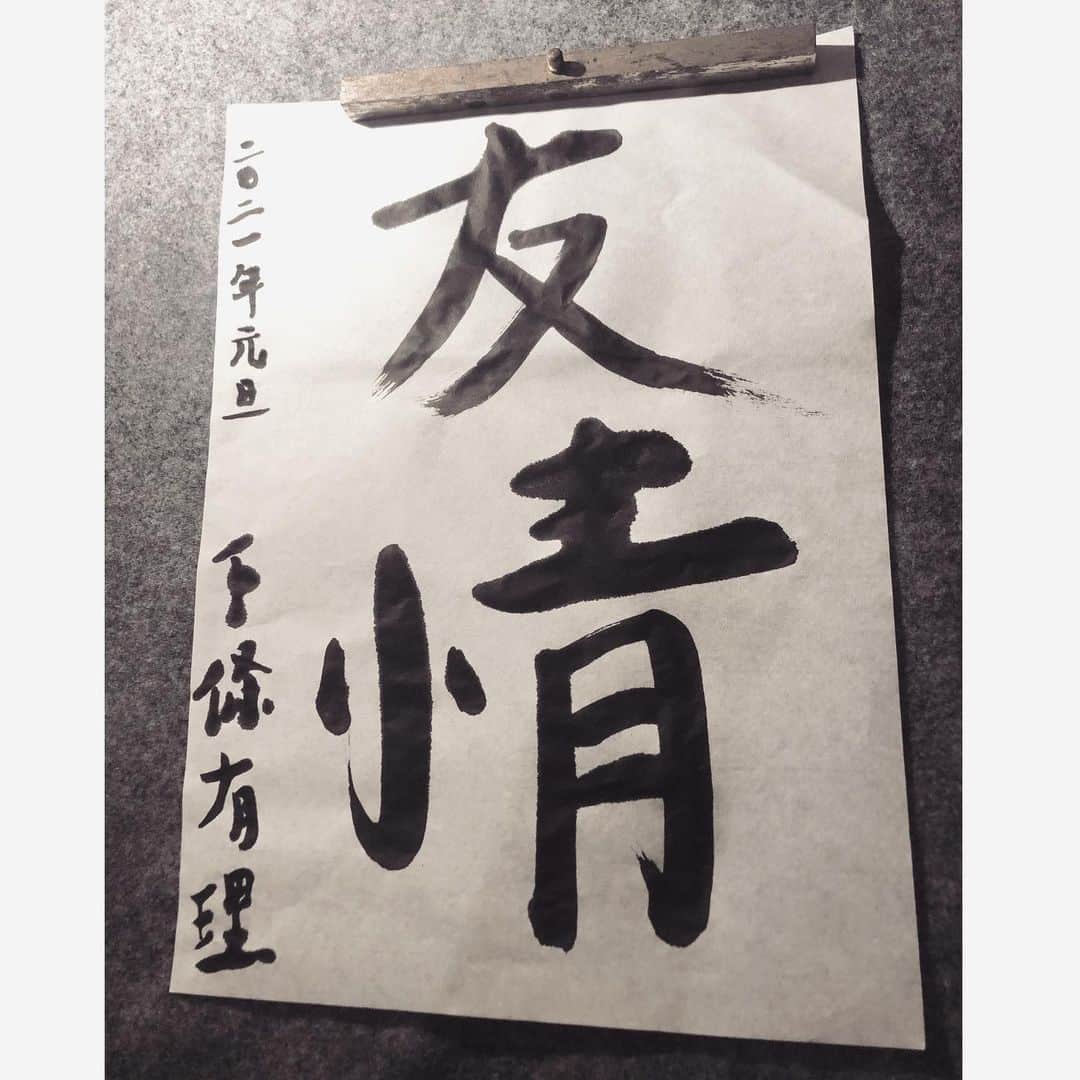 友情
二〇二一年元旦
條有理